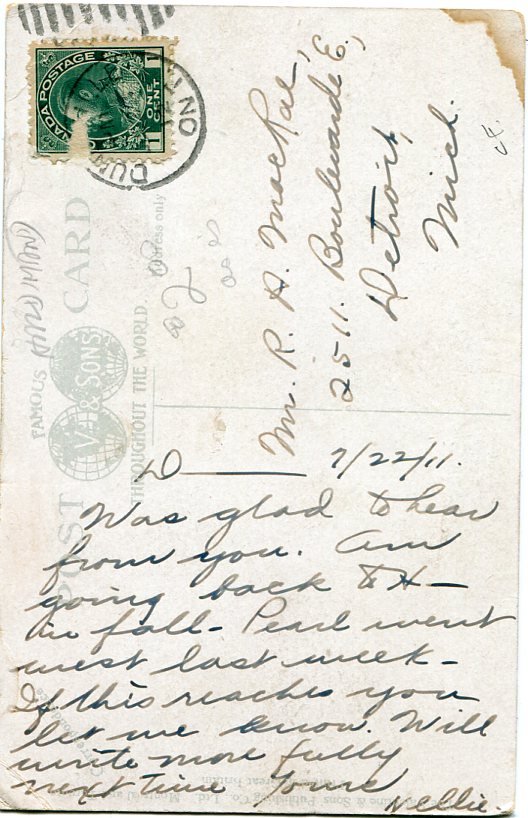 CANADA POSTAGE
1 ONE CENT 1
DUN
ONT
POST CARD
FAMOUS
THROUGHOUT THE WORLD.
V & SONS
Address only
Mr. R. A. MacRae,
2511. Boulevarde E.,
Detroit,
Mich.
D—— 7/22/11.
Was glad to hear
from you. Am
going back to H—
in fall— Pearl went
west last week—
If this reaches you
let me know. Will
write more fully
next time Yours
Nellie.
& Sons Publishing Co. Ltd.
Great Britain